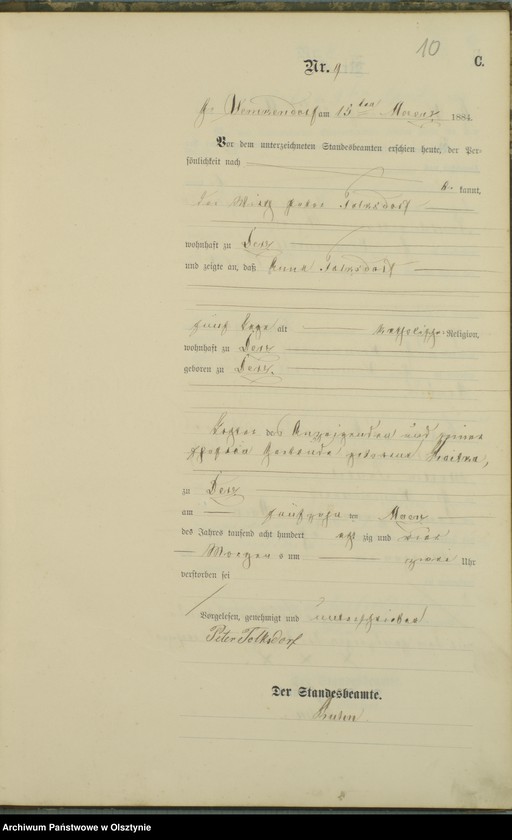 10
C.
Nr. 9.
am 15ten Maerz 1884.
Vor dem unterzeichneten Standesbeamten erschien heute, der Per-
sönlichkeit nach
be kannt,
der Wirth Peter Tolksdorf
wohnhaft zu Derz
und zeigte an, daß Anna Tolksdorf
fünf Tage alt katholischer Religion,
wohnhaft zu Derz
geboren zu Derz.
Tochter des Anzeigenden und seiner
Ehefrau geborene
zu Derz
am fünfzehn ten Maerz
des Jahres tausend acht hundert acht zig und vier
Morgens um zwei Uhr
verstorben sei
Vorgelesen, genehmigt und unterschrieben
Peter Tolksdorf
Der Standesbeamte.
Archiwum Państwowe w Olsztynie